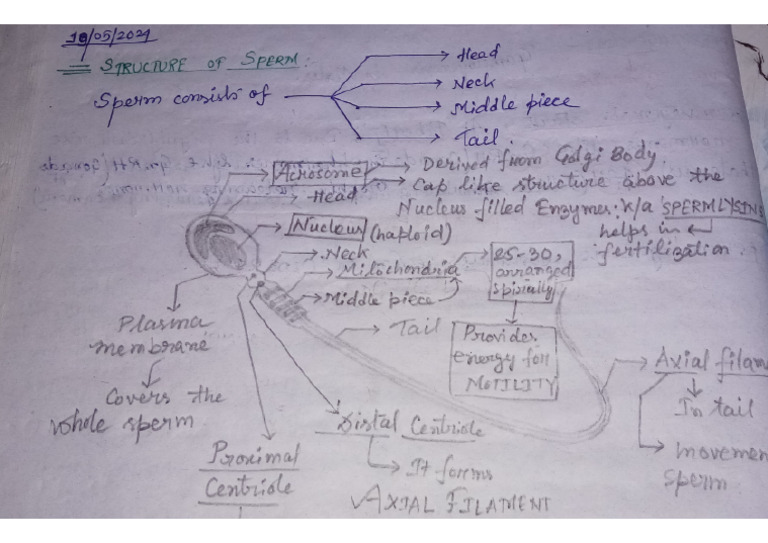 18/05/2021
STRUCTURE OF SPERM:
Sperm consists of
Head
Neck
Middle piece
Tail.
Acrosome
Derived from Golgi Body.
Cap like structure above the
Nucleus filled Enzymes. k/a SPERMLYSINS
helps in
fertilization.
Head
Nucleus (haploid)
Neck
Mitochondria
25-30,
arranged
spirially
Middle piece
Tail
Provides
energy for
MOTILITY
Plasma
membrane
Covers the
whole sperm
Axial filam
In tail
movemen
sperm
Distal Centriole
It forms
AXIAL FILAMENT
Proximal
Centriole